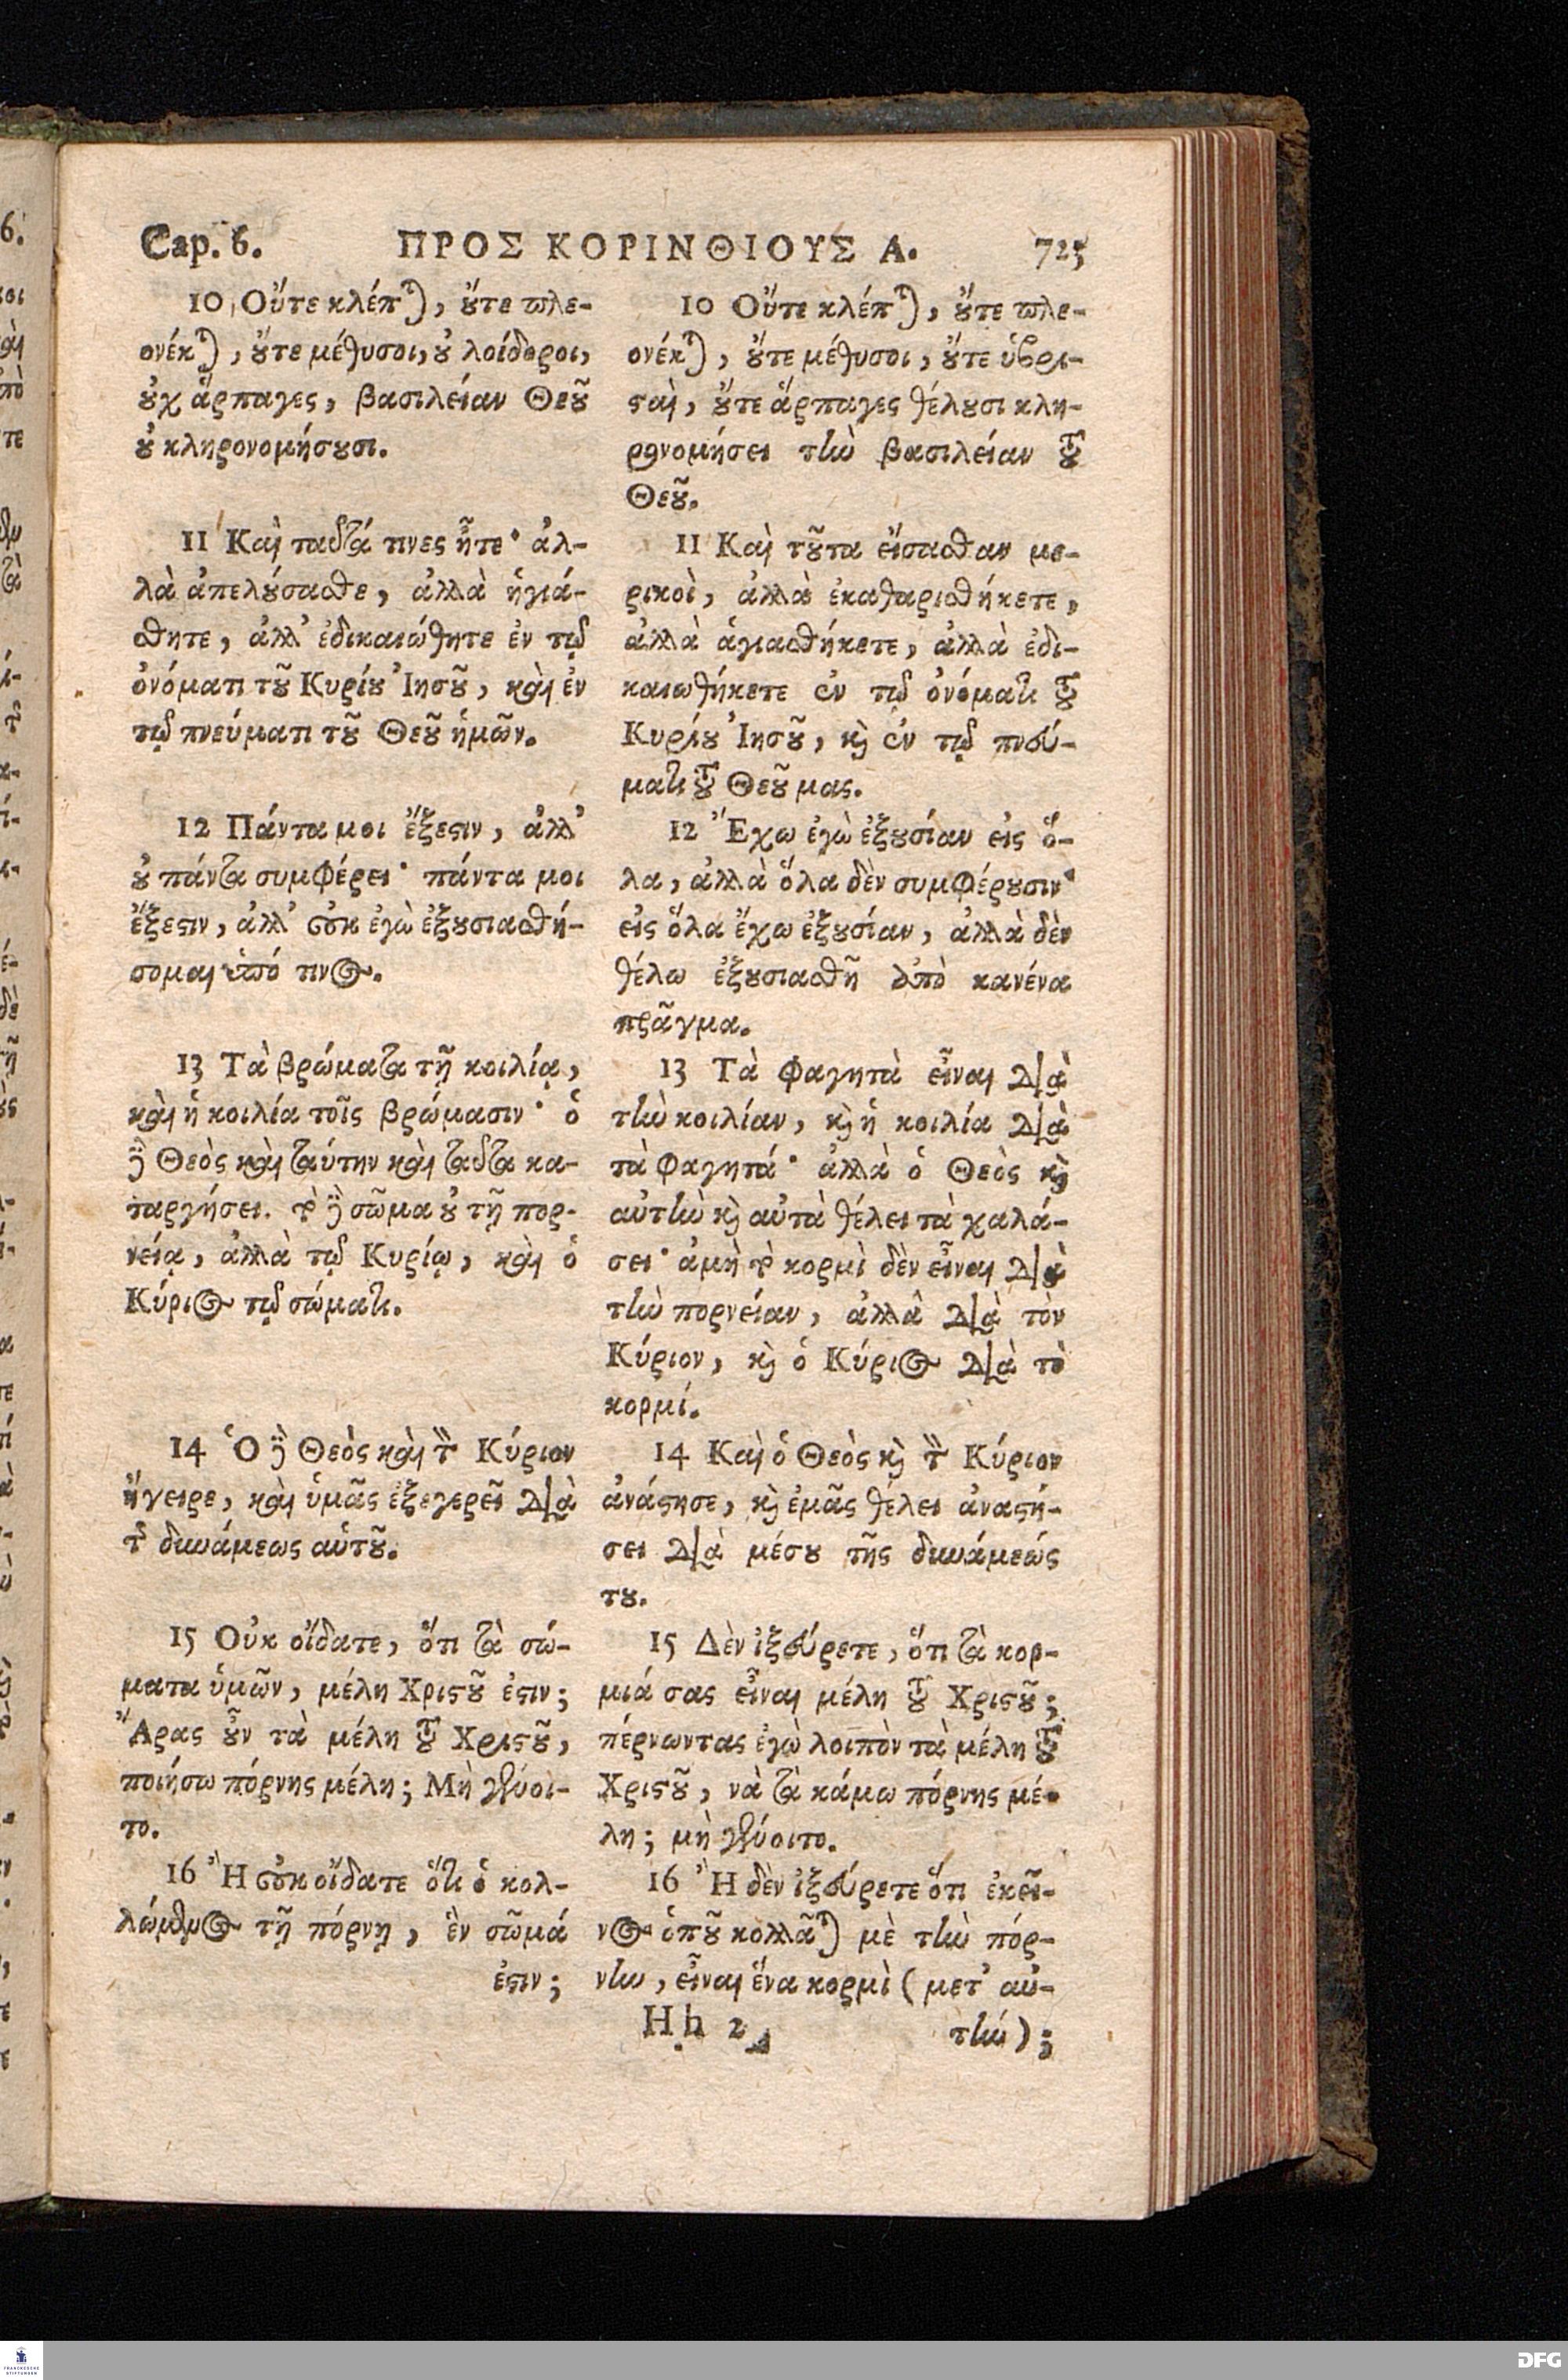 Cap. 6. ΠΡΟΣ ΚΟΡΙΝΘΙΟΥΣ Α. 725
10 Οὔτε κλέπται, ὔτε πλε-
ονέκται, ὔτε μέθυσοι, ὐ λοίδοροι,
ὐχ ἅρπαγες, βασιλείαν Θεȣ͂
ȣ̓ κληρονομήσȣσι.
11 Καὶ ταῦτά τινες ἦτε· ἀλ-
λὰ ἀπελȣ́σασθε, ἀλλὰ ἡγιά-
σθητε, ἀλλ' ἐδικαιώθητε ἐν τῷ
ὀνόματι τȣ͂ Κυρίȣ Ἰησȣ͂, καὶ ἐν
τῷ πνεύματι τȣ͂ Θεȣ͂ ἡμῶν.
12 Πάντα μοι ἔξεϛιν, ἀλλ'
ȣ̓ πάντα συμφέρει· πάντα μοι
ἔξεϛιν, ἀλλ' οὐκ ἐγὼ ἐξȣσιασθή-
σομαι ὑπό τινος.
13 Τὰ βρώματα τῇ κοιλίᾳ,
καὶ ἡ κοιλία τοῖς βρώμασιν· ὁ
δὲ Θεὸς καὶ ταύτην καὶ ταῦτα κα-
ταργήσει. τὸ δὲ σῶμα ȣ̓ τῇ πορ-
νείᾳ, ἀλλὰ τῷ Κυρίῳ, καὶ ὁ
Κύριος τῷ σώματι.
14 Ὁ δὲ Θεὸς καὶ τὸν Κύριον
ἤγειρε, καὶ ὑμᾶς ἐξεγερεῖ διὰ
τῆς δυνάμεως αὑτȣ͂.
15 Οὐκ οἴδατε, ὅτι τὰ σώ-
ματα ὑμῶν, μέλη Χριϛȣ͂ ἐϛιν;
Ἄρας ȣ̓͂ν τὰ μέλη τȣ͂ Χριϛȣ͂,
ποιήσω πόρνης μέλη; Μὴ γένοι-
το.
16 Ἢ οὐκ οἴδατε ὅτι ὁ κολ-
λώμενος τῇ πόρνῃ, ἓν σῶμά
ἐϛιν;
10 Οὔτε κλέπται, ȣ̓́τε πλε-
ονέκται, ȣ̓́τε μέθυσοι, ȣ̓́τε ὑβρι-
ϛαὶ, ȣ̓́τε ἅρπαγες θέλȣσι κλη-
ρονομήσει τὴν βασιλείαν τȣ͂
Θεȣ͂.
11 Καὶ τȣ͂τα εἴσασθαν με-
ρικοὶ, ἀλλὰ ἐκαθαρισθήκετε,
ἀλλὰ ἁγιασθήκετε, ἀλλὰ ἐδι-
καιωθήκετε ἐν τῷ ὀνόματι τȣ͂
Κυρίȣ Ἰησȣ͂, κὶ ἐν τῷ πνεύ-
ματι τȣ͂ Θεȣ͂ μας.
12 Ἔχω ἐγὼ ἐξȣσίαν εἰς ὅ-
λα, ἀλλὰ ὅλα δὲν συμφέρȣσιν·
εἰς ὅλα ἔχω ἐξȣσίαν, ἀλλὰ δὲν
θέλω ἐξȣσιασθῆ ἀπὸ κανένα
πρᾶγμα.
13 Τὰ φαγητὰ εἶναι διὰ
τὴν κοιλίαν, κὶ ἡ κοιλία διὰ
τὰ φαγητά· ἀλλὰ ὁ Θεὸς κὶ
αὐτὴν κὶ αὐτὰ θέλει τὰ χαλά-
σει· ἀμὴ τὸ κορμὶ δὲν εἶναι διὰ
τὴν πορνείαν, ἀλλὰ διὰ τὸν
Κύριον, κὶ ὁ Κύριος διὰ τὸ
κορμί.
14 Καὶ ὁ Θεὸς κὶ τὸν Κύριον
ἀνάϛησε, κὶ ἐμᾶς θέλει ἀναϛή-
σει διὰ μέσȣ τῆς δυνάμεώς
τȣ.
15 Δὲν ἰξεύρετε, ὅτι τὰ κορ-
μιά σας εἶναι μέλη τȣ͂ Χριϛȣ͂;
πέρνωντας ἐγὼ λοιπὸν τὰ μέλη τȣ͂
Χριϛȣ͂, νὰ τὰ κάμω πόρνης μέ-
λη; μὴ γένοιτο.
16 Ἢ δὲν ἰξεύρετε ὅτι ἐκεῖ-
νος ὁπȣ͂ κολλᾶται μὲ τὴν πόρ-
νην, εἶναι ἕνα κορμὶ (μετ' αὐ-
Hh 2 τήν);
FRANCKESCHE STIFTUNGEN
DFG